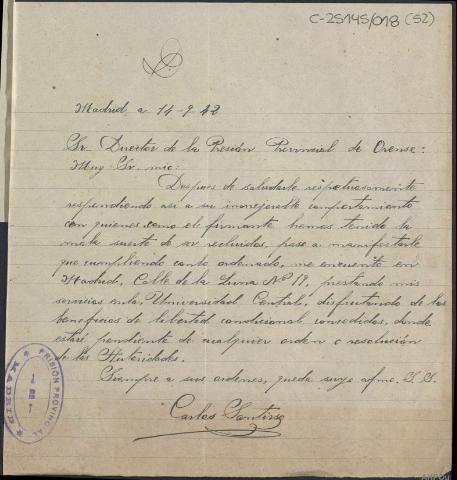 C-25145/018 (52)
Madrid a 14-9-42
Sr. Director de la Presión Provincial de Orense:
Muy Sr. mio:
Despues de saludarle respetuosamente
respondiendo asi a su inmejorable comportamiento
con quienes como el firmante hemos tenido la
mala suerte de ser recluidos, paso a manifestarle
que cumpliendo lo ordenado, me encuentro en
Madrid, Calle de la Luna Nº 19, prestando mis
servicios en la Universidad Central, disfrutando de los
beneficios de libertad condicional concedidos, donde
estaré pendiente de cualquier orden o resolución
de las Autoridades.
Siempre a sus ordenes, queda suyo afmo. S. S.
Carlos
PRISIÓN PROVINCIAL
MADRID